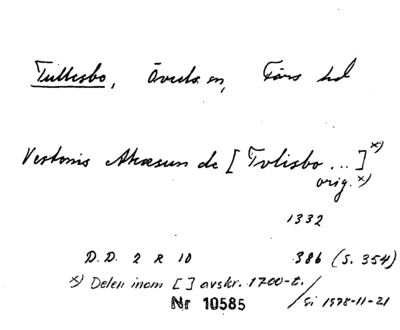 Tullesbo, Öveds sn, Färs hd
Vestonis Akæsun de [Tvlisbo ...] x)
orig. x)
1332
D.D. 2 R 10 386 (S. 354)
x) Delen inom [ ] avskr. 1700-t.
Nr 10585 /Gi 1978-11-21